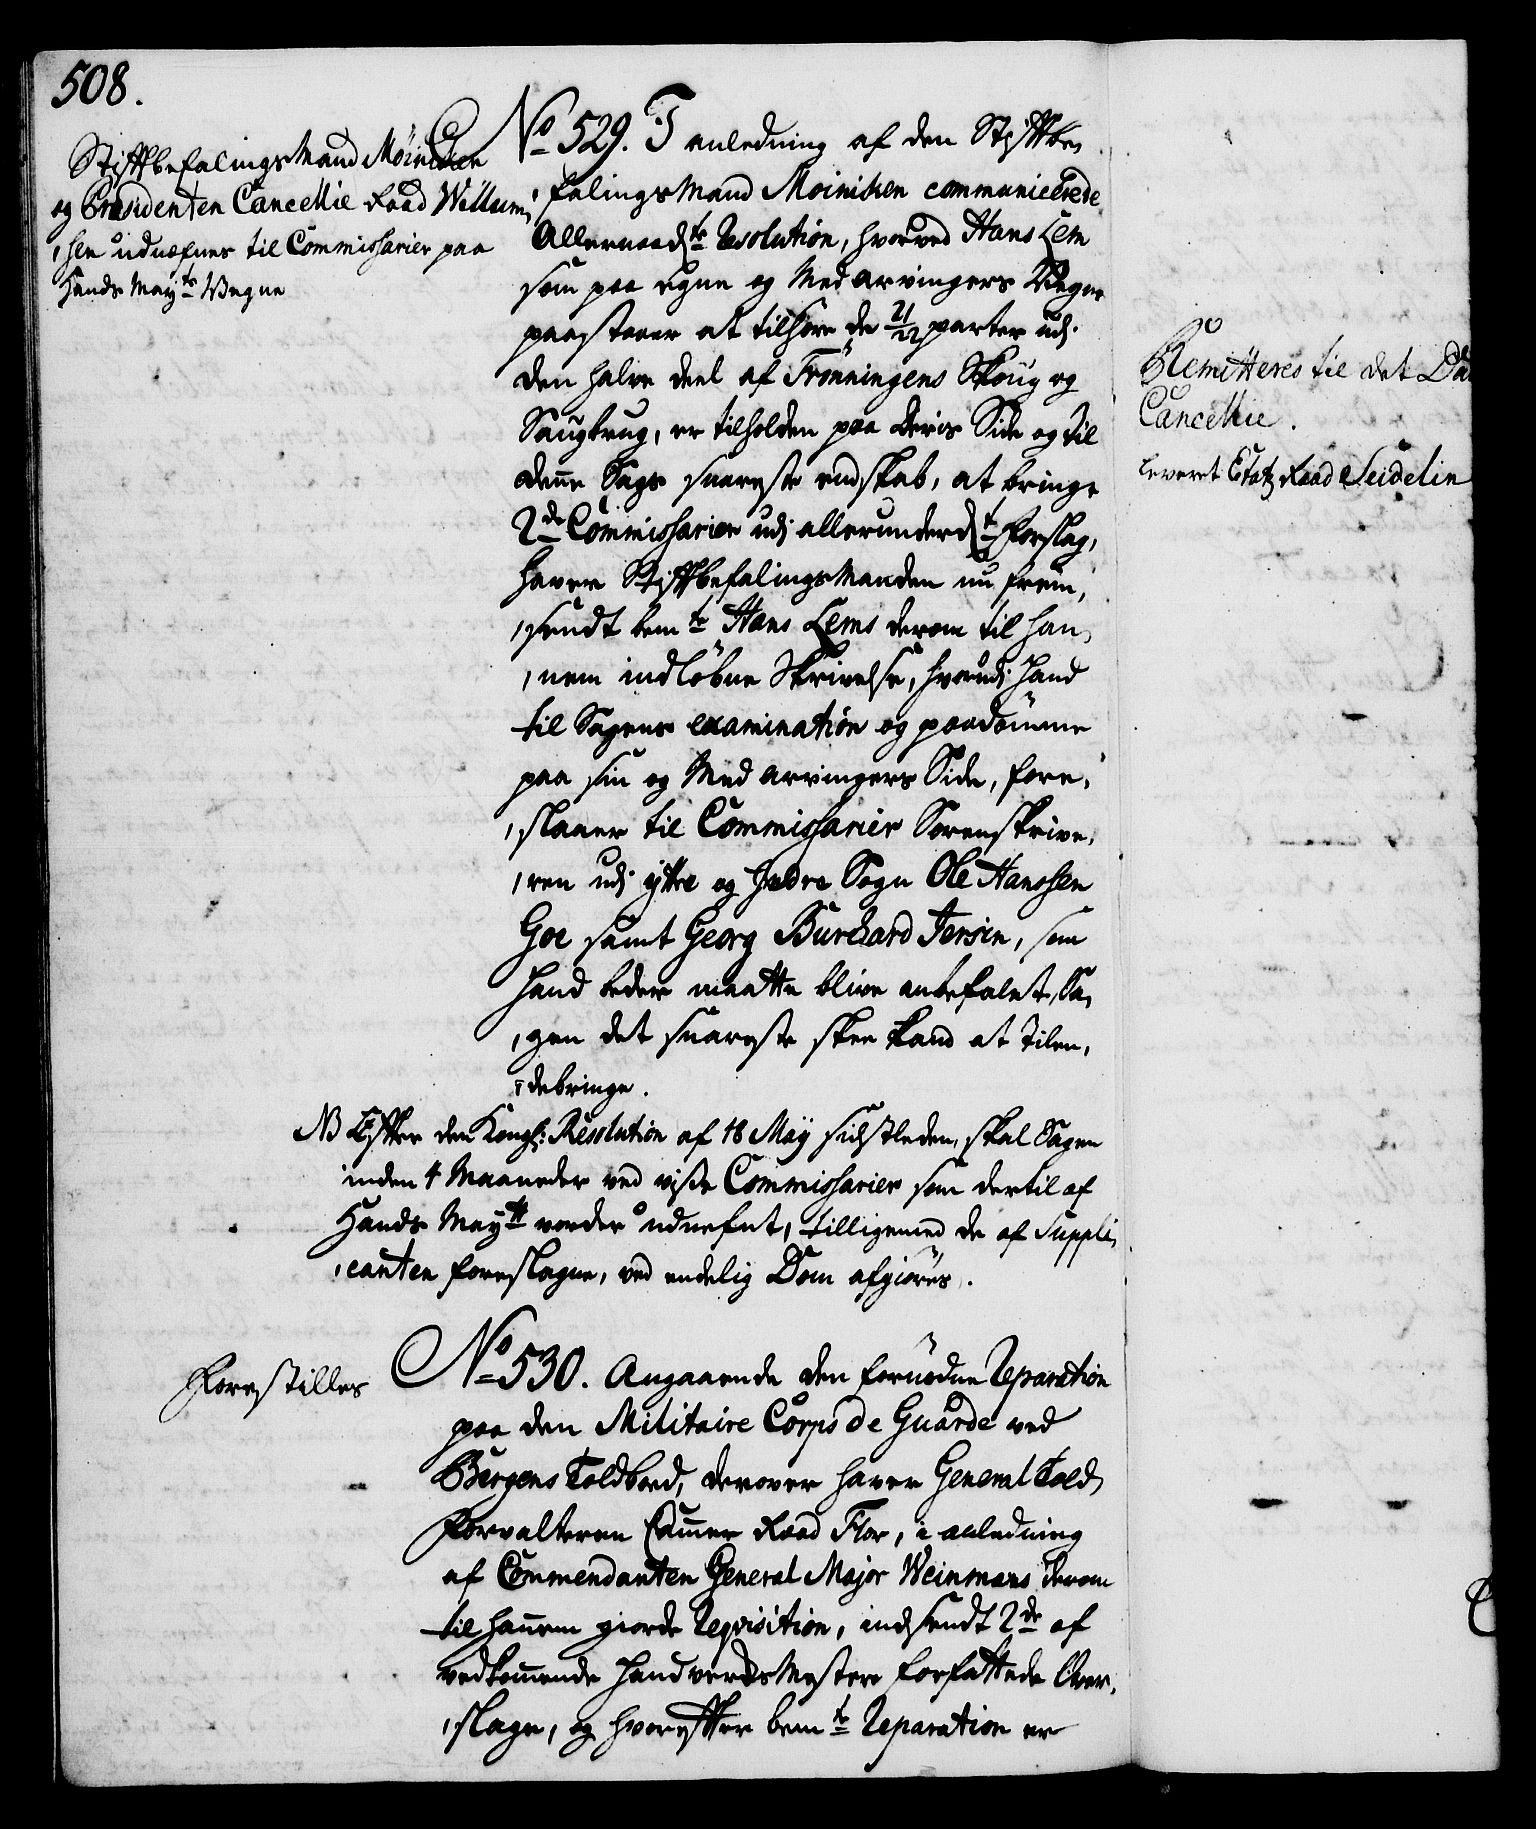 508.
Stiftbefalings Mand Möinichen
og Præsidenten Cancellie Raad Willum,
,sen udnefnes til Commissarier paa
Hands Mayts Vegne
No 529. I anledning af den Stiftbe,
,falings Mand Moinichen communicerede
Allernaadte Resolution, hvorved Hans Lem
som paa egne og Med arvingers Vegne
paastaaer at tilhöre de 21/22 parter udi
den halve deel af Frönningens Skoug og
Saugbrug, er tilholden paa deris Side og til
denne Sags snareste endskab, at bringe
2de Commissarier udi allerunderdte Forslag,
haver Stiftbefalings Manden nu frem,
,sendt bemte Hans Lems derom til han,
,nem indlöbne Skrivelse, hvorudi hand
til Sagens examination og paadömme
paa sin og Med arvingers Side, fore,
,slaaer til Commissarier Sorenskrive,
,ren udi yttre og Indre Sogn Ole Hanssen
Goe samt Georg Burchard Jersin, som
hand beder maatte blive anbefalet, Sa,
,gen det snareste skee kand at tilen,
,debringe.
NB Efter den Kongl: Resolution af 18 Maÿ sidstleden, skal Sagen
inden 4 Maaneder ved visse Commissarier som dertil af
Hands Maytt vorder udnefnt, tilligemed de af Suppli,
,canten foreslagne, ved endelig Dom afgiöres.
Forestilles
No 530. Angaaende den fornödne Reparation
paa den Militaire Corps de Guarde ved
Bergens Toldboed, derover haver General Told,
Forvalteren Cammer Raad Flor, i anledning
af Commendanten General Major Weinmans derom
til hannem giorde Reqvisition, indsendt 2de af
vedkommende Handverks Mestere forfattede Over,
,slage, og hvorefter bemte Reparation er
Remitteres til det
Cancellie.
leveret Etatz Raad Seidelin